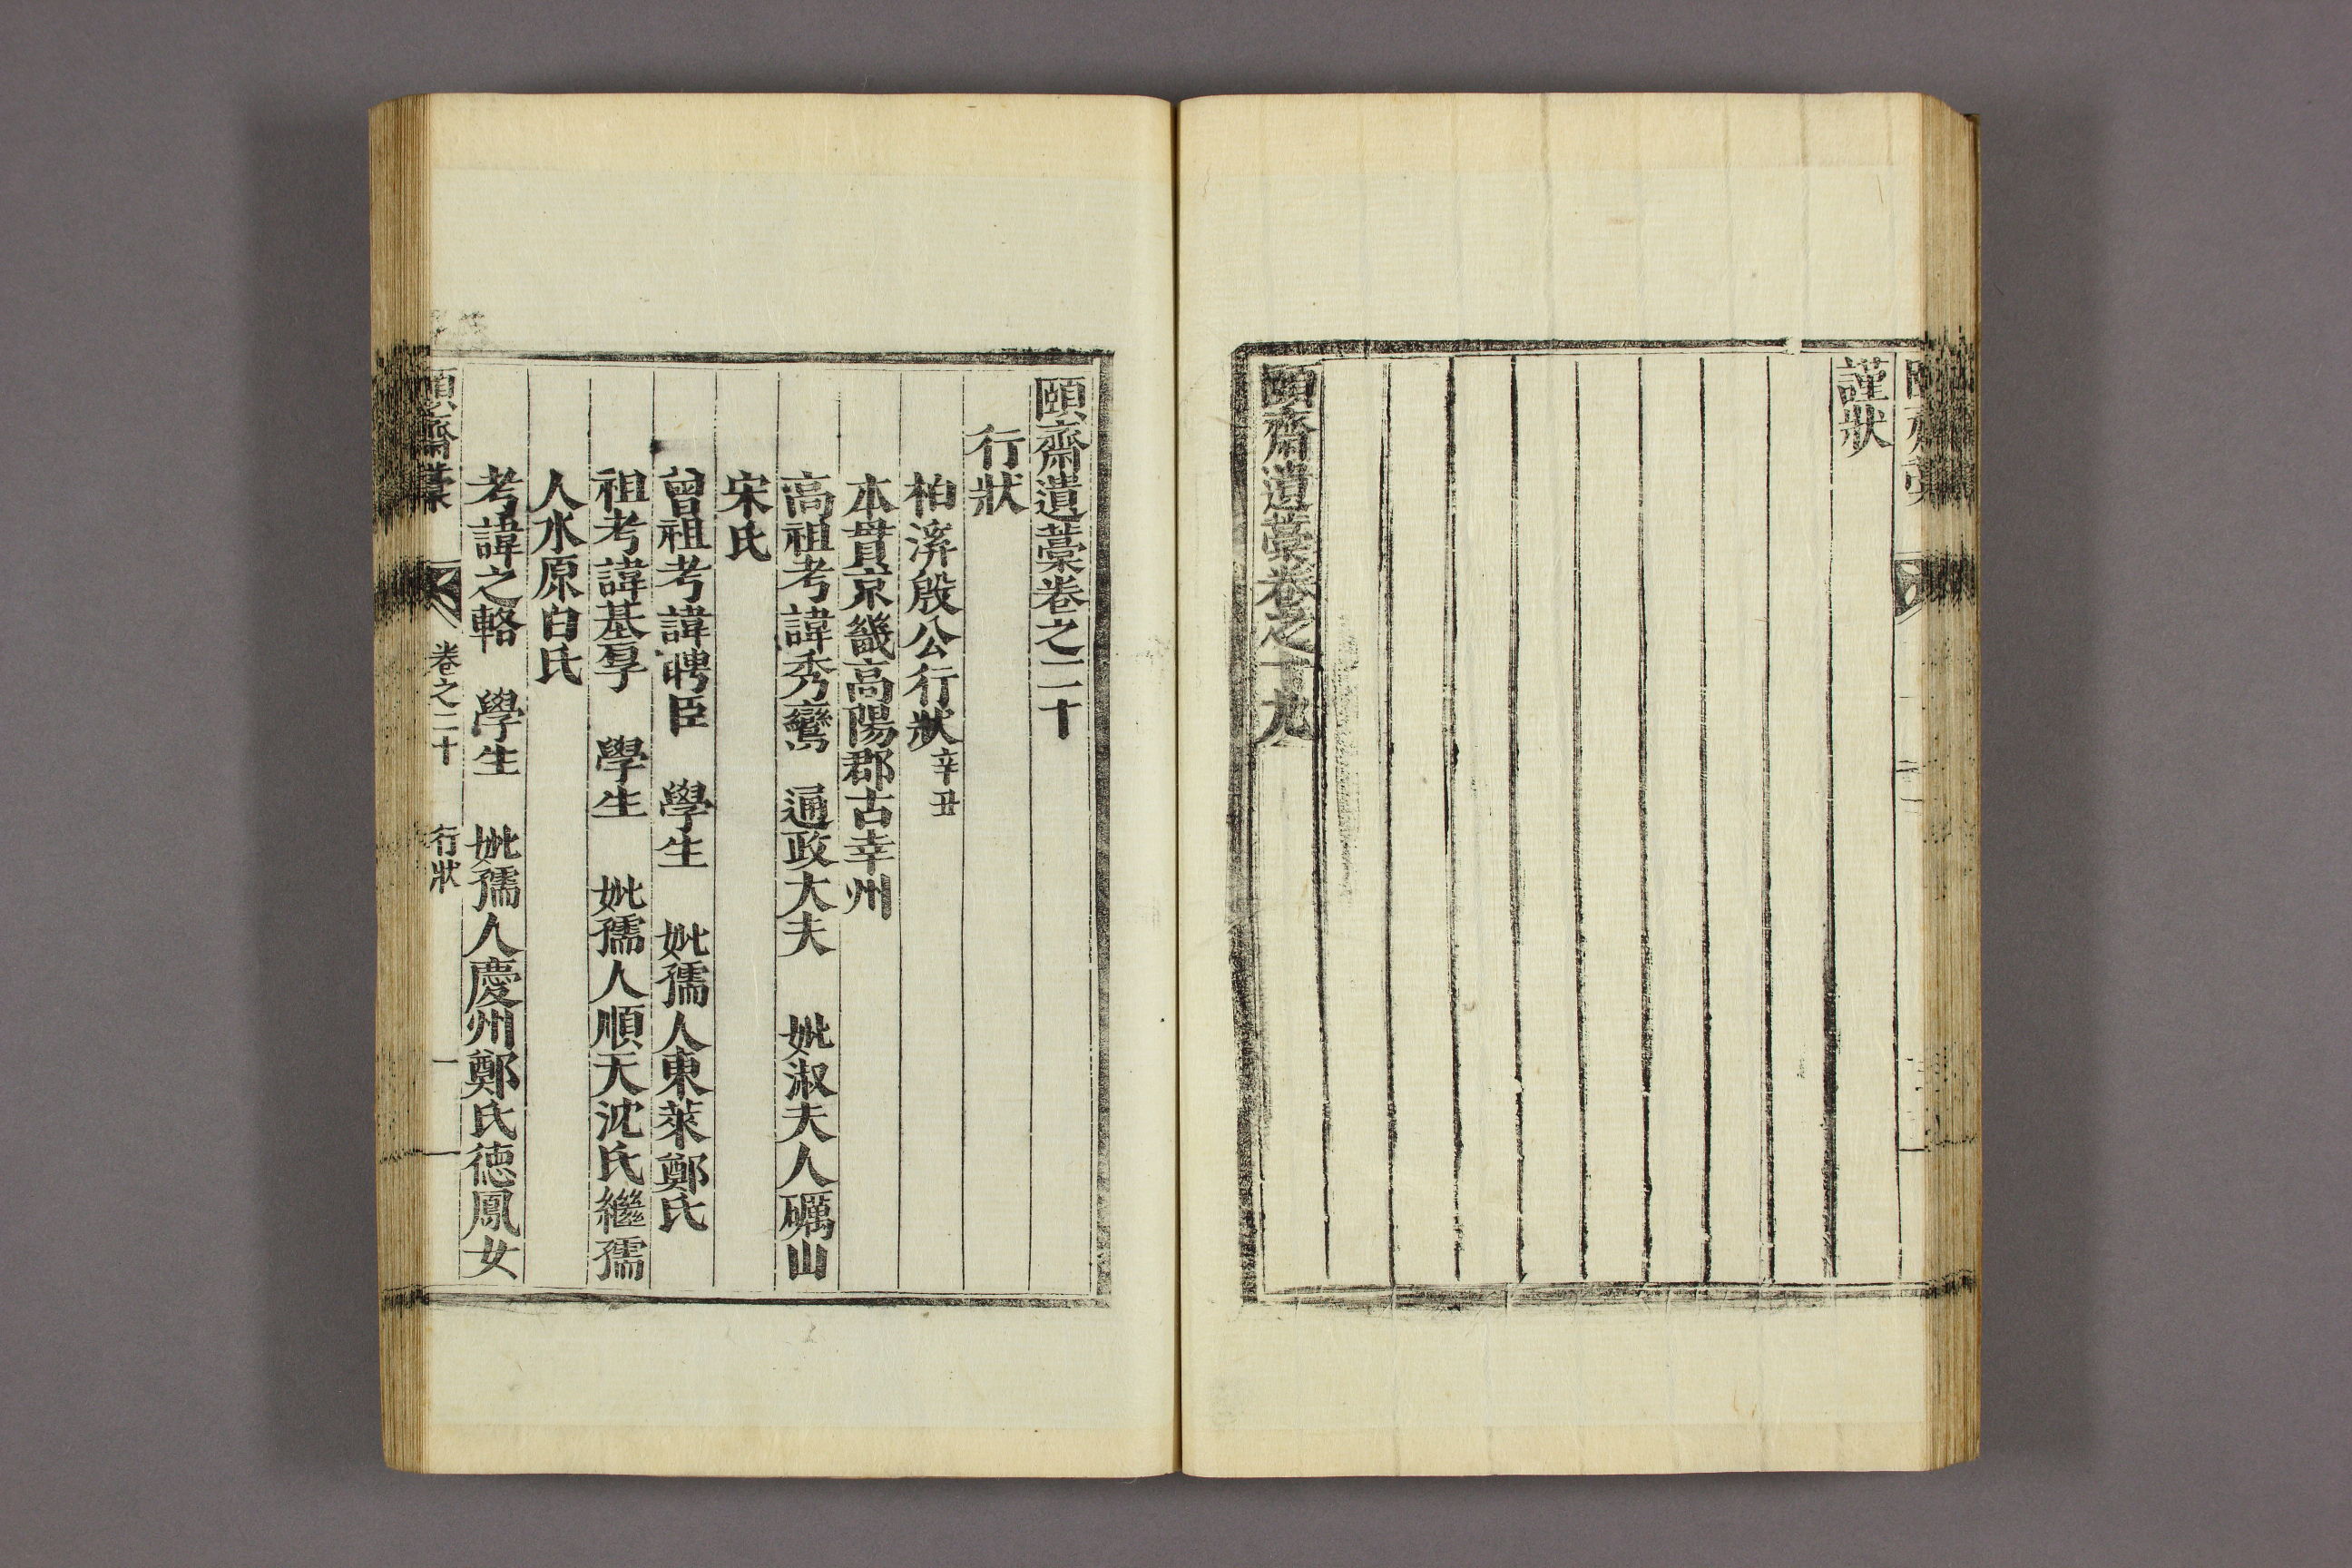 謹狀
頤齋遺藁卷之十九
頤齋遺藁卷之二十
行狀
柏濟殷公行狀辛丑
本貫京畿高陽郡古幸州
高祖考諱秀鸞 通政大夫 妣淑夫人礪山
宋氏
曾祖考諱聘臣 學生 妣孺人東萊鄭氏
祖考諱基孚 學生 妣孺人順天沈氏繼孺
人水原白氏
考諱之輅 學生 妣孺人慶州鄭氏德鳳女
頤齋藁 卷之二十 行狀 一